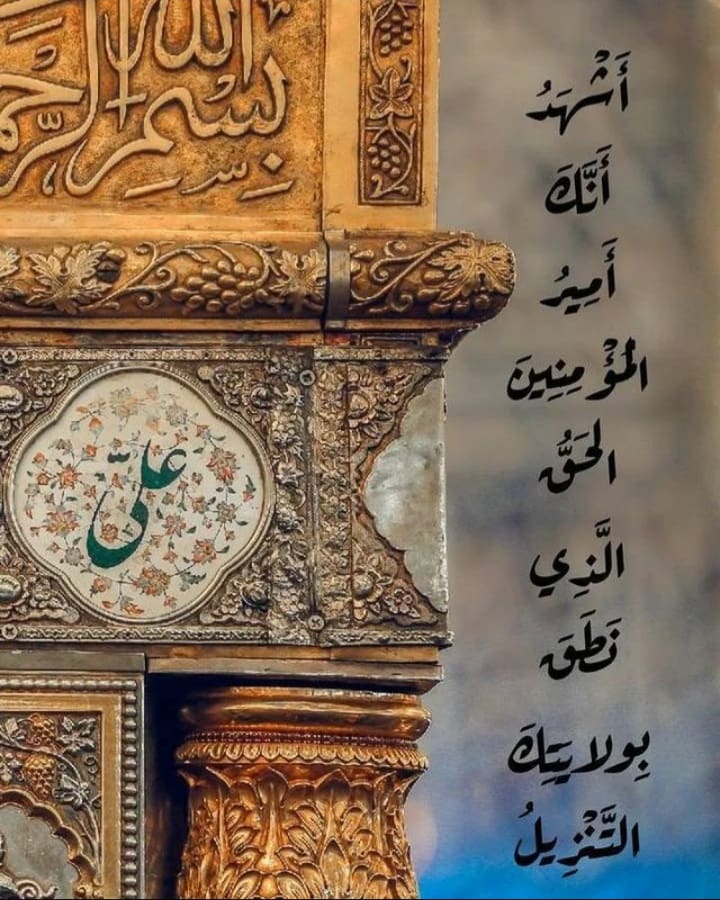 بِسْمِ اللّٰهِ الرَّحْمٰ
عليّ
أَشْهَدُ
أَنَّكَ
أَمِيرُ
المُؤْمِنِينَ
الحَقُّ
الَّذِي
نَطَقَ
بِولايَتِكَ
التَّنْزِيلُ